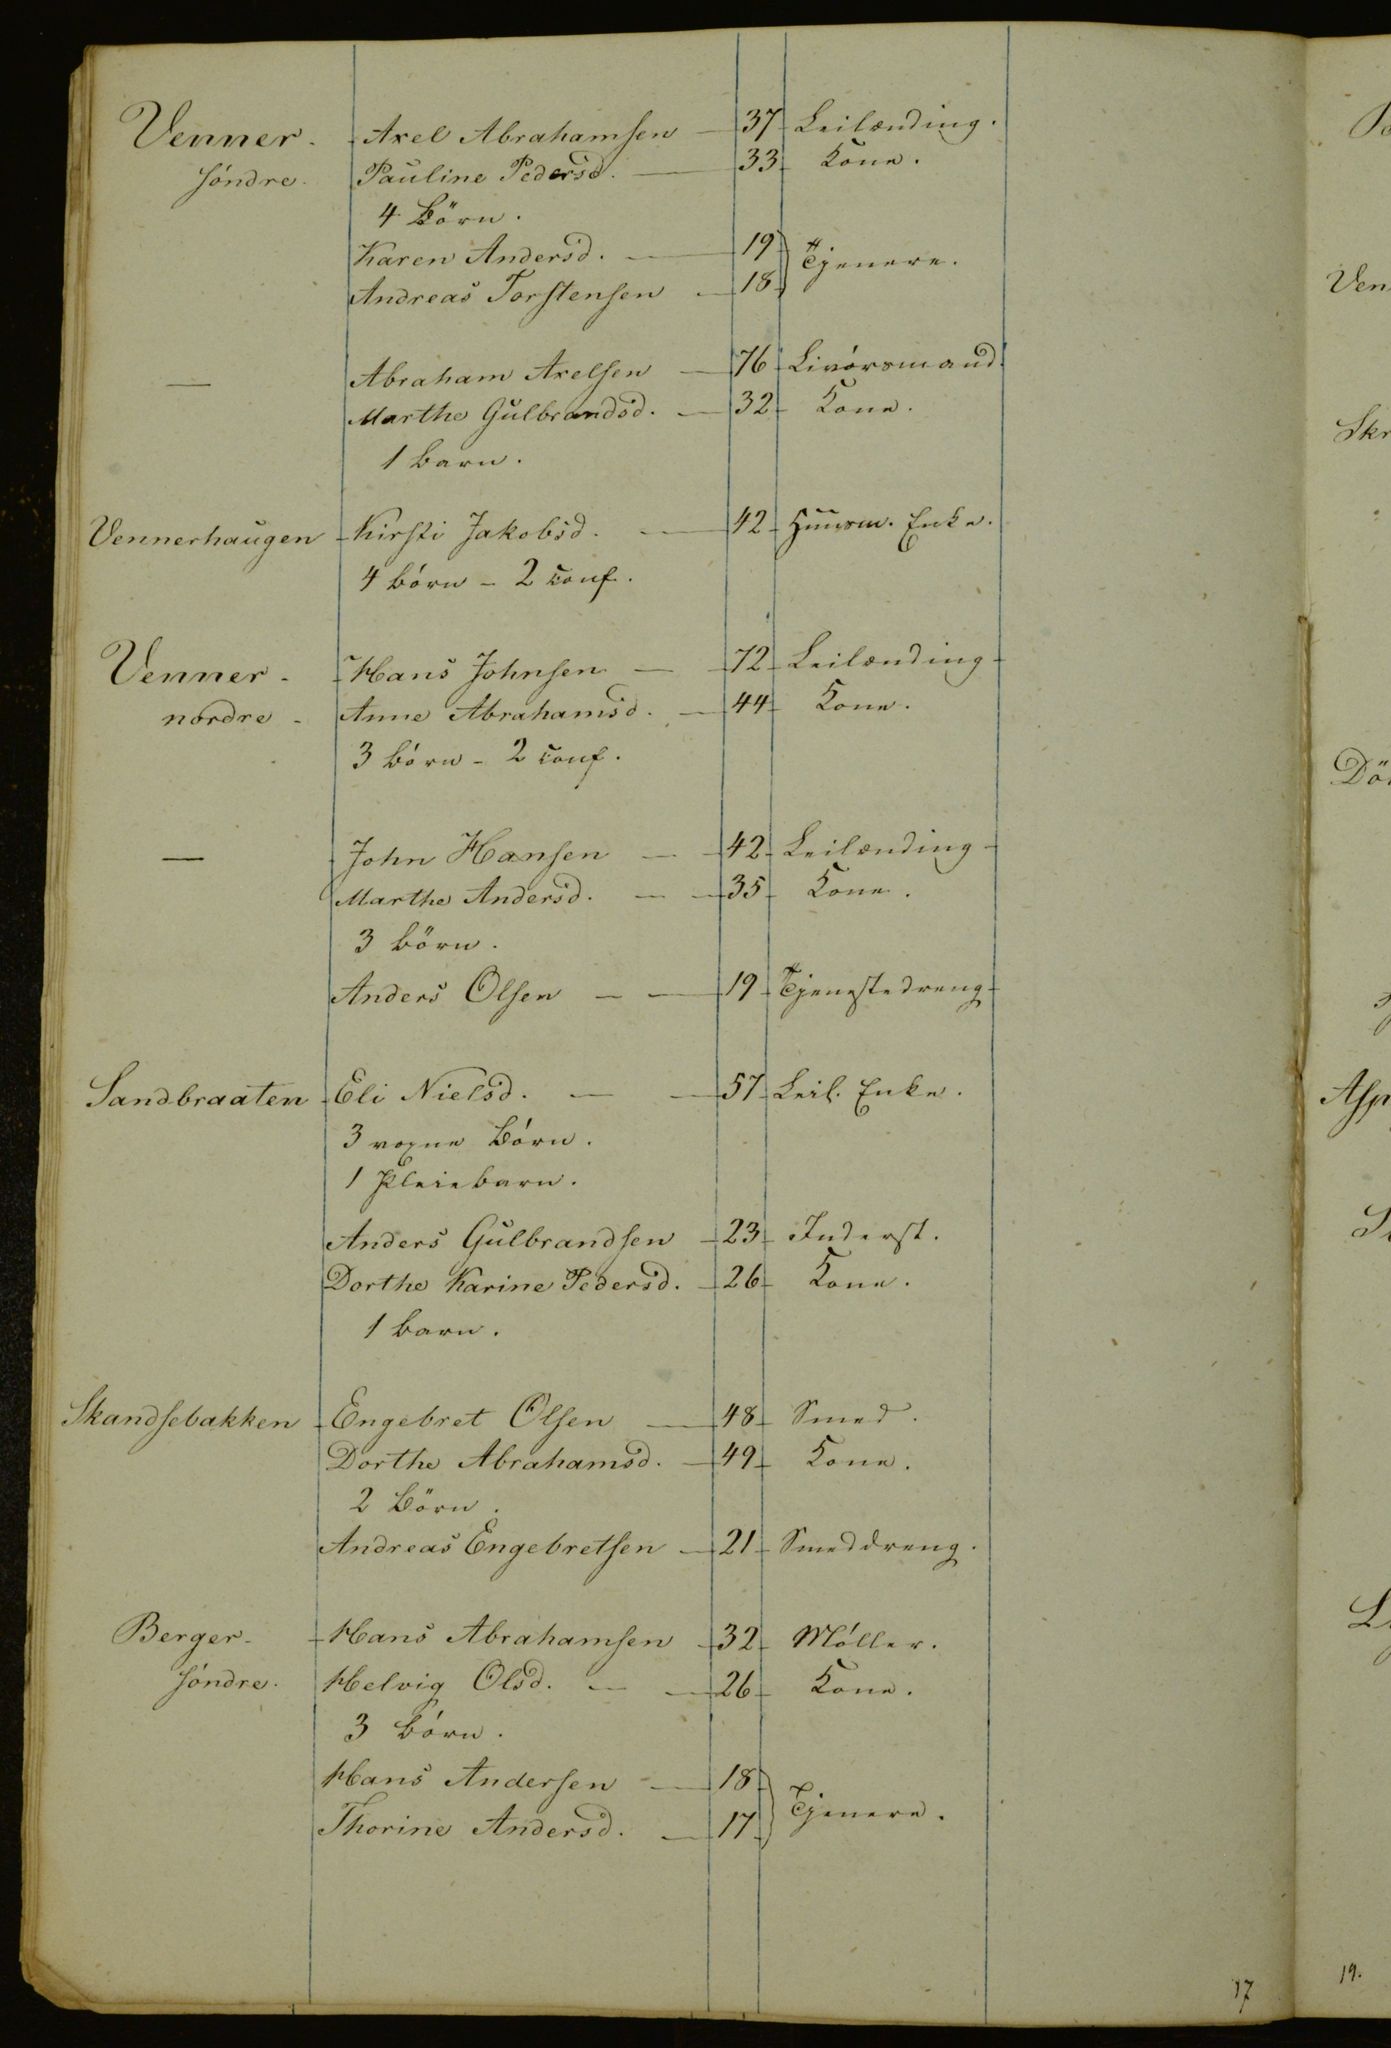 Venner. Axel Abrahamsen — 37 Leilænding.
söndre. Pauline Pedersd. — 33 Kone.
4 Börn.
Karen Andersd. — 19 Tjenere.
Andreas Torstensen — 18
— Abraham Axelsen — 76 Livörsmand.
Marthe Gulbrandsd. — 32 Kone.
1 Barn.
Vennerhaugen Kirsti Jakobsd. — 42 Huusm. Enke.
4 Börn - 2 conf.
Venner - Hans Johnsen — 72 Leilænding
nordre - Anne Abrahamsd. — 44 Kone.
3 Börn - 2 conf.
— John Hansen — 42 Leilænding
Marthe Andersd. — 35 Kone.
3 Börn.
Anders Olsen — 19 Tjenestedreng
Sandbraaten Eli Nielsd. — 57 Leil. Enke.
3 voxne Börn.
1 Pleiebarn.
Anders Gulbrandsen 23 Inderst.
Dorthe Karine Pedersd. 26 Kone.
1 Barn.
Skandsebakken Engebret Olsen — 48 Smed.
Dorthe Abrahamsd. — 49 Kone.
2 Börn.
Andreas Engebretsen — 21 Smeddreng.
Berger. Hans Abrahamsen 32 Möller.
söndre. Helvig Olsd. — 26 Kone.
3 Börn.
Hans Andersen — 18 Tjenere.
Thorine Andersd. — 17
17
Ven
Skr
Dö
Asp
19.